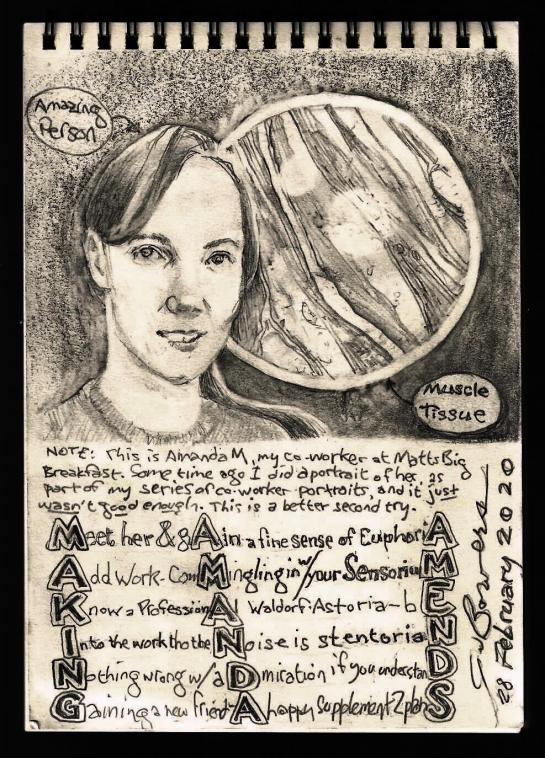 Amazing
Person
Muscle
Tissue
NOTE: This is Amanda M, my co-worker at Matts Big
Breakfast. Some time ago I did a portrait of her, as
part of my series of co-worker portraits, and it just
wasn't good enough. This is a better second try.
Meet her & gAin a fine sense of EuphoriA
Add Work-ComMingling in w/your SensoriuM
Know a ProfessionAl Waldorf:Astoria-bE
Into the work tho the Noise is stentoriaN
Nothing wrong w/aDmiration if you understanD
Gaining a new friend A happy Supplement 2 planS
S. Bowers
28 February 2020